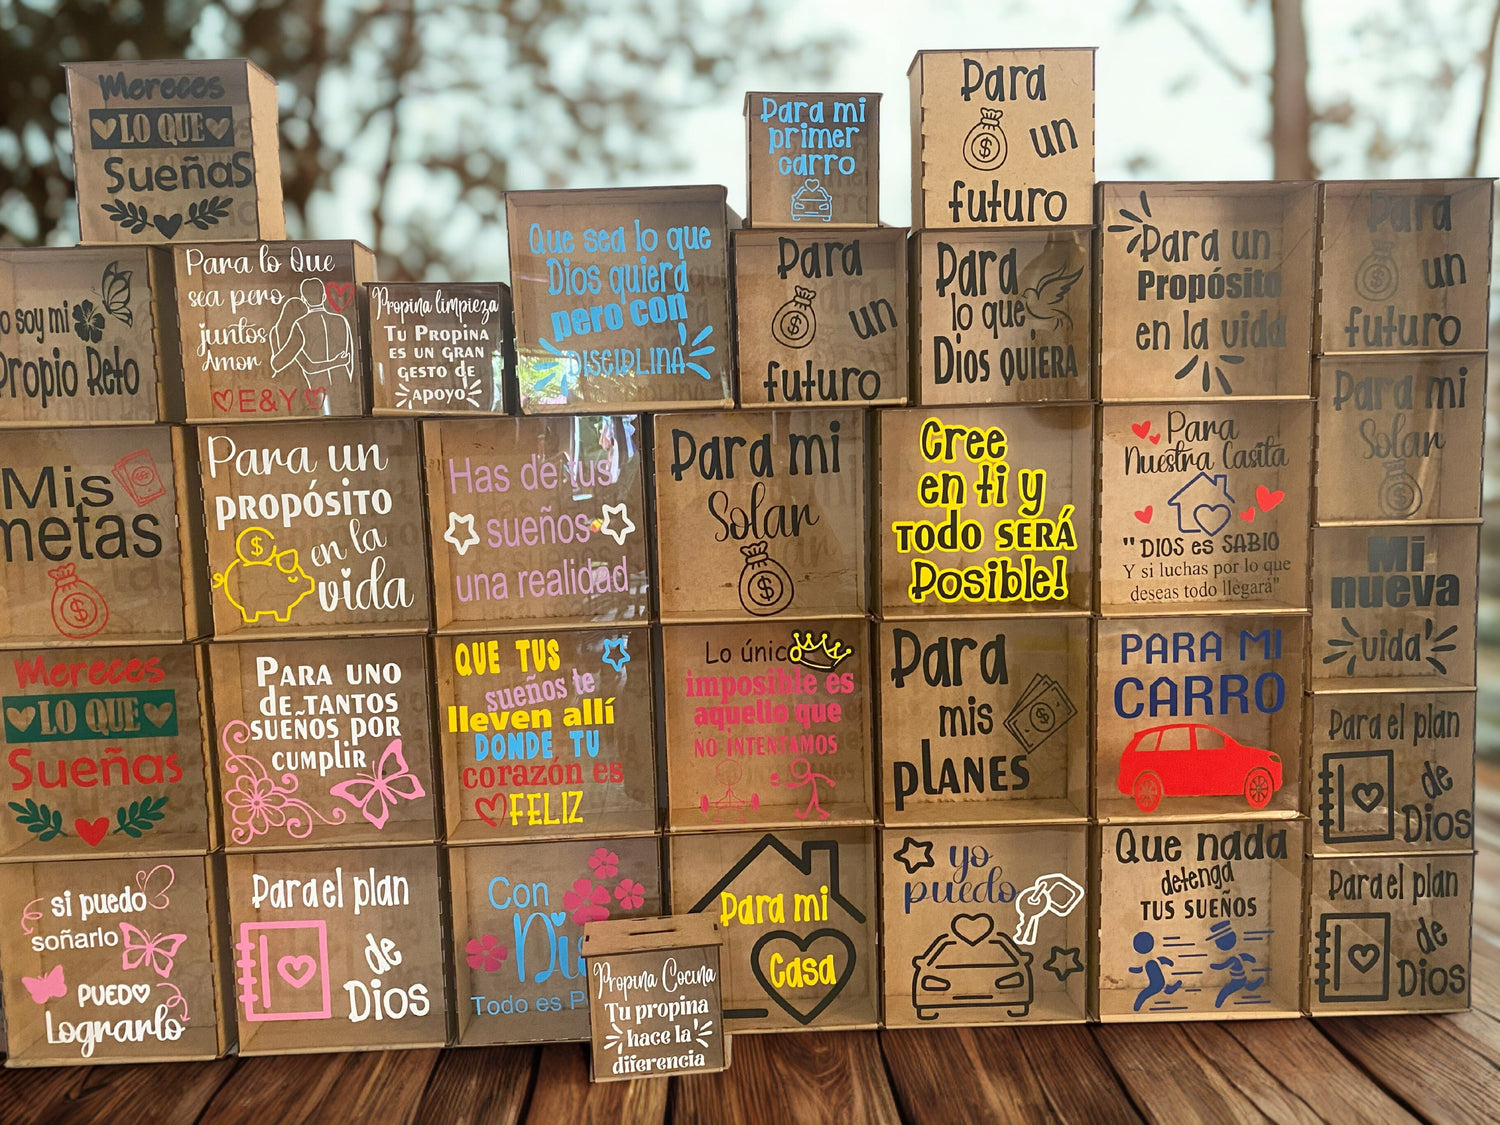 Mereces
LO QUE
Sueñas
Para mi
primer
carro
Para
un
futuro
soy mi
Propio Reto
Para lo Que
sea pero
juntos
Amor
E&Y
Propina limpieza
Tu Propina
es un gran
gesto de
apoyo
Que sea lo que
Dios quiera
pero con
DISCIPLINA
Para
un
futuro
Para
lo que
Dios QUIERA
Para un
Propósito
en la vida
Para
un
futuro
Mis
metas
$
Para un
PROPÓSITO
en la
vida
$
Has de tus
sueños
una realidad
Para mi
Solar
$
Cree
en ti y
TODO SERÁ
Posible!
Para
Nuestra Casita
"DIOS es SABIO
Y si luchas por lo que
deseas todo llegará"
Para mi
Solar
Mi
nueva
vida
Mereces
LO QUE
Sueñas
Para uno
de tantos
sueños por
cumplir
QUE TUS
sueños te
lleven allí
DONDE TU
corazón es
FELIZ
Lo único
imposible es
aquello que
NO INTENTAMOS
Para
mis
PLANES
PARA MI
CARRO
Para el plan
de
Dios
si puedo
soñarlo
PUEDO
Lograrlo
Para el plan
de
Dios
Con
Todo es
Propina Cocina
Tu propina
hace la
diferencia
Para mi
Casa
yo
puedo
Que nada
detenga
TUS SUEÑOS
Para el plan
de
Dios